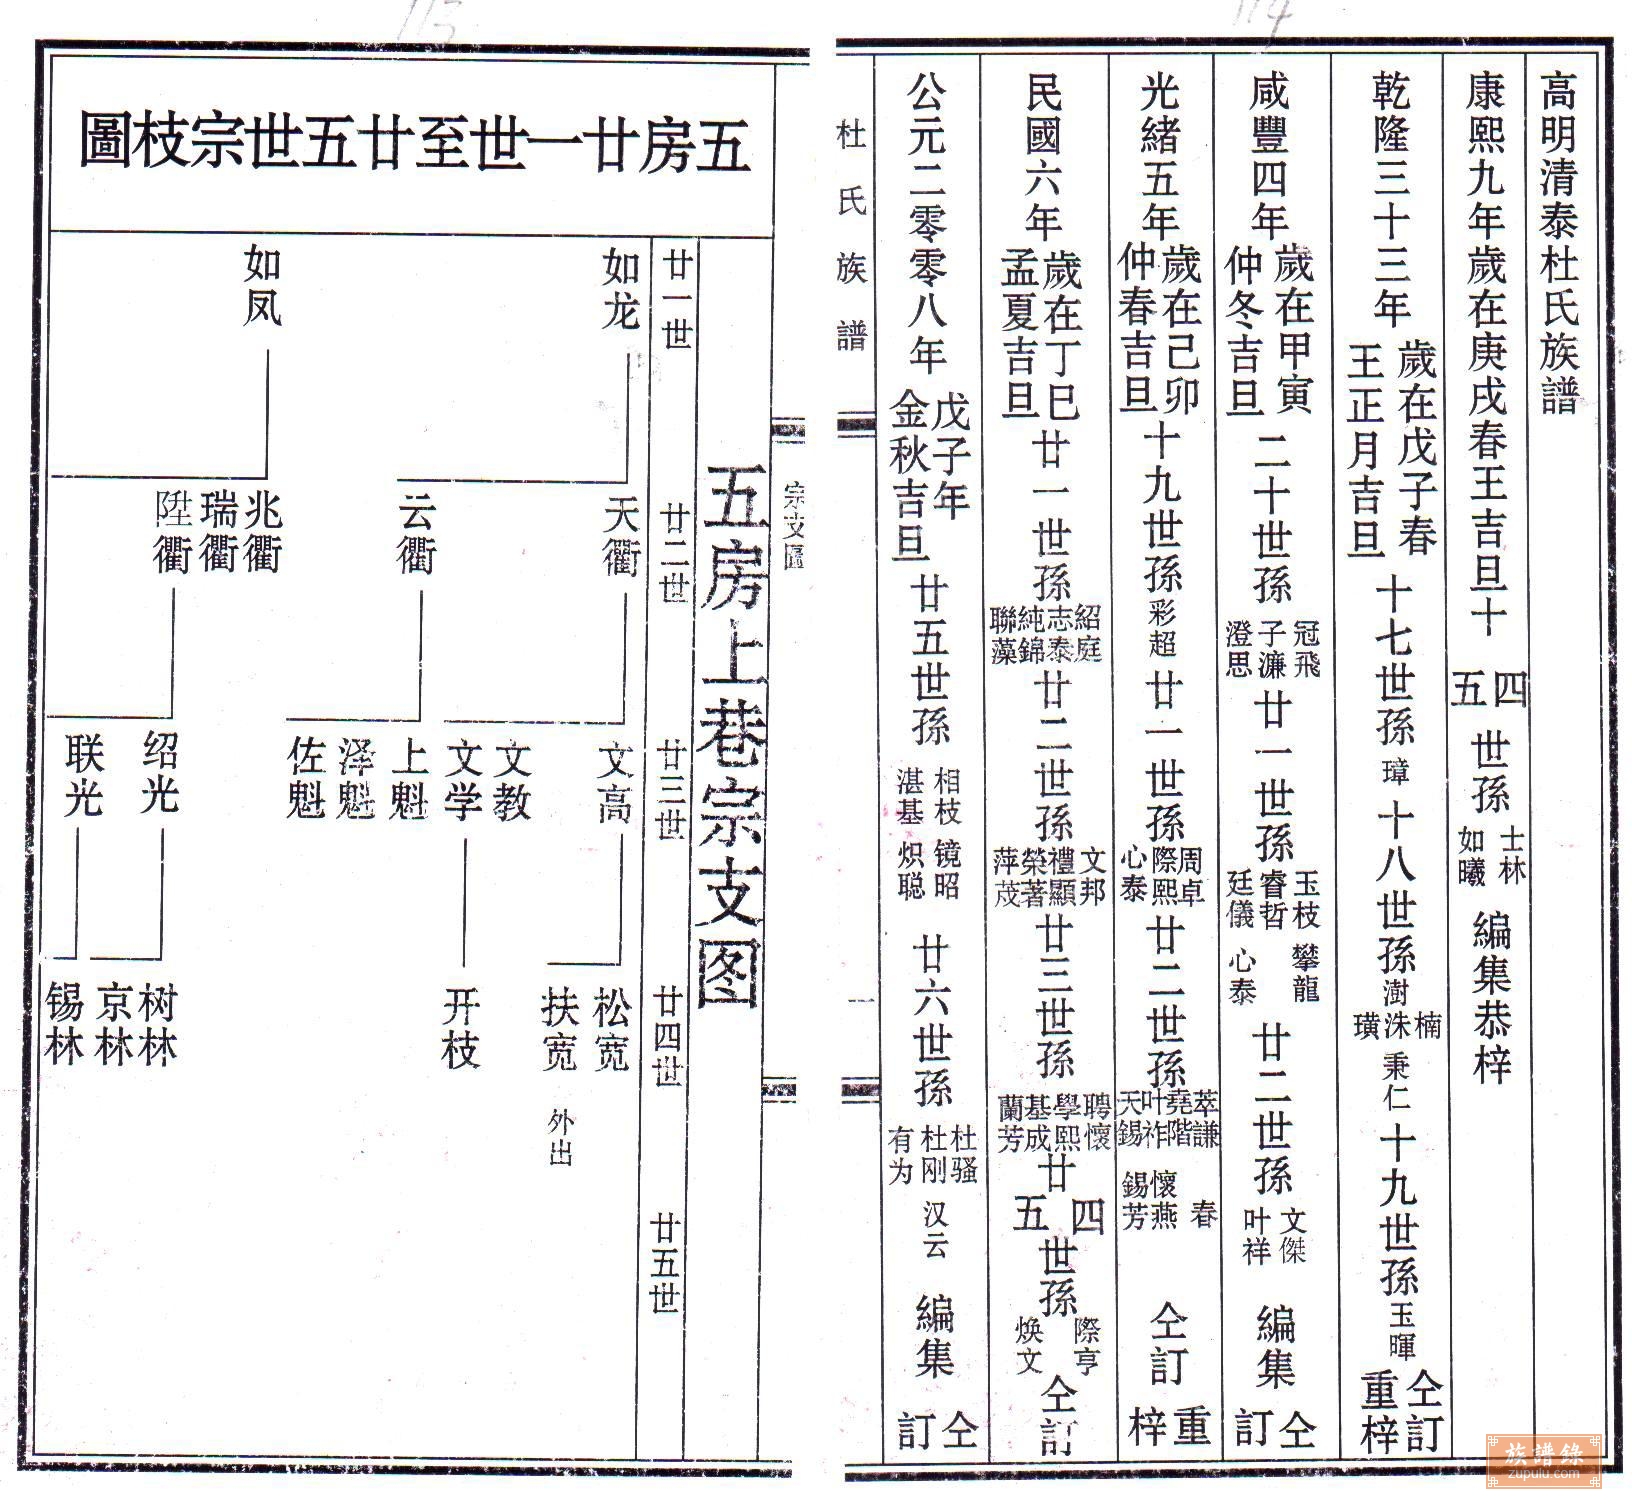 113
114
高明清泰杜氏族譜
康熙九年歲在庚戌春王吉旦十四五世孫士林如曦編集恭梓
乾隆三十三年歲在戊子春王正月吉旦十七世孫璋十八世孫澍楠洙璜秉仁十九世孫玉暉仝訂重梓
咸豐四年歲在甲寅仲冬吉旦二十世孫冠飛子濂澄思廿一世孫玉枝睿哲廷儀攀龍心泰廿二世孫文傑叶祥編集仝訂
光緒五年歲在己卯仲春吉旦十九世孫彩超廿一世孫周卓際熙心泰廿二世孫萃謙堯階叶祚天錫春懷燕錫芳仝訂重梓
民國六年歲在丁巳孟夏吉旦廿一世孫紹庭志泰純錦聯藻廿二世孫文邦禮顯榮著萍茂廿三世孫聘懷學熙基成蘭芳廿四五世孫際亨煥文仝訂
公元二零零八年戊子年金秋吉旦廿五世孫相枝湛基镜昭炽聪廿六世孫杜骚杜刚有为汉云編集仝訂
杜氏族譜
一
宗支圖
五房廿一世至廿五世宗枝圖
五房上巷宗支图
廿一世
如龙
如凤
廿二世
天衢
云衢
兆衢
瑞衢
陞衢
廿三世
文高
文教
文学
上魁
泽魁
佐魁
绍光
联光
廿四世
松宽
扶宽 外出
开枝
树林
京林
锡林
廿五世
族譜錄
zupulu.com